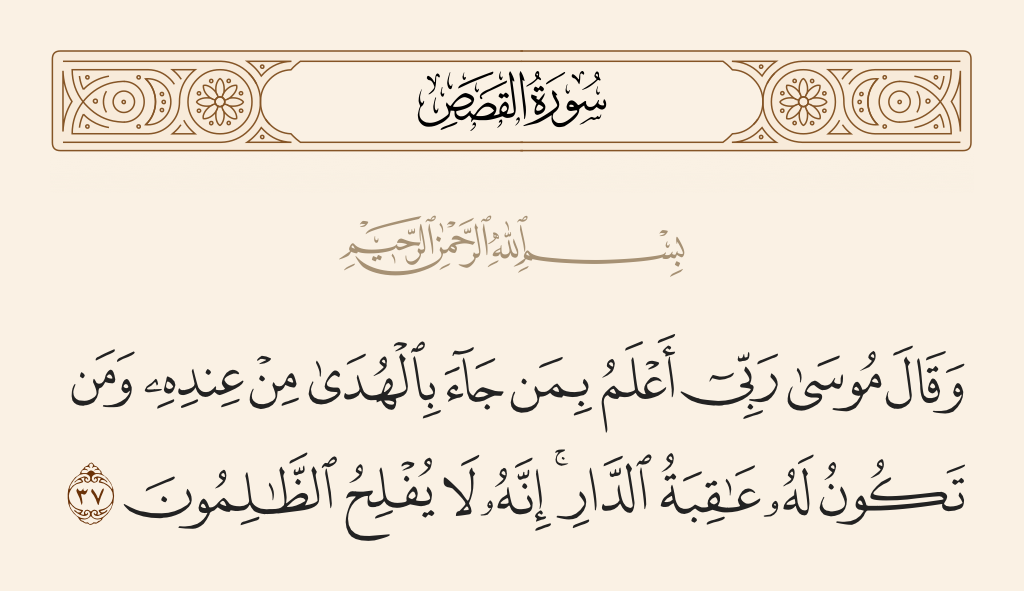 سُورَةُ القَصَصِ
بِسْمِ ٱللَّهِ ٱلرَّحْمَٰنِ ٱلرَّحِيمِ
وَقَالَ مُوسَىٰ رَبِّىٓ أَعْلَمُ بِمَن جَآءَ بِٱلْهُدَىٰ مِنْ عِندِهِۦ وَمَن
تَكُونُ لَهُۥ عَٰقِبَةُ ٱلدَّارِ ۚ إِنَّهُۥ لَا يُفْلِحُ ٱلظَّٰلِمُونَ ٣٧